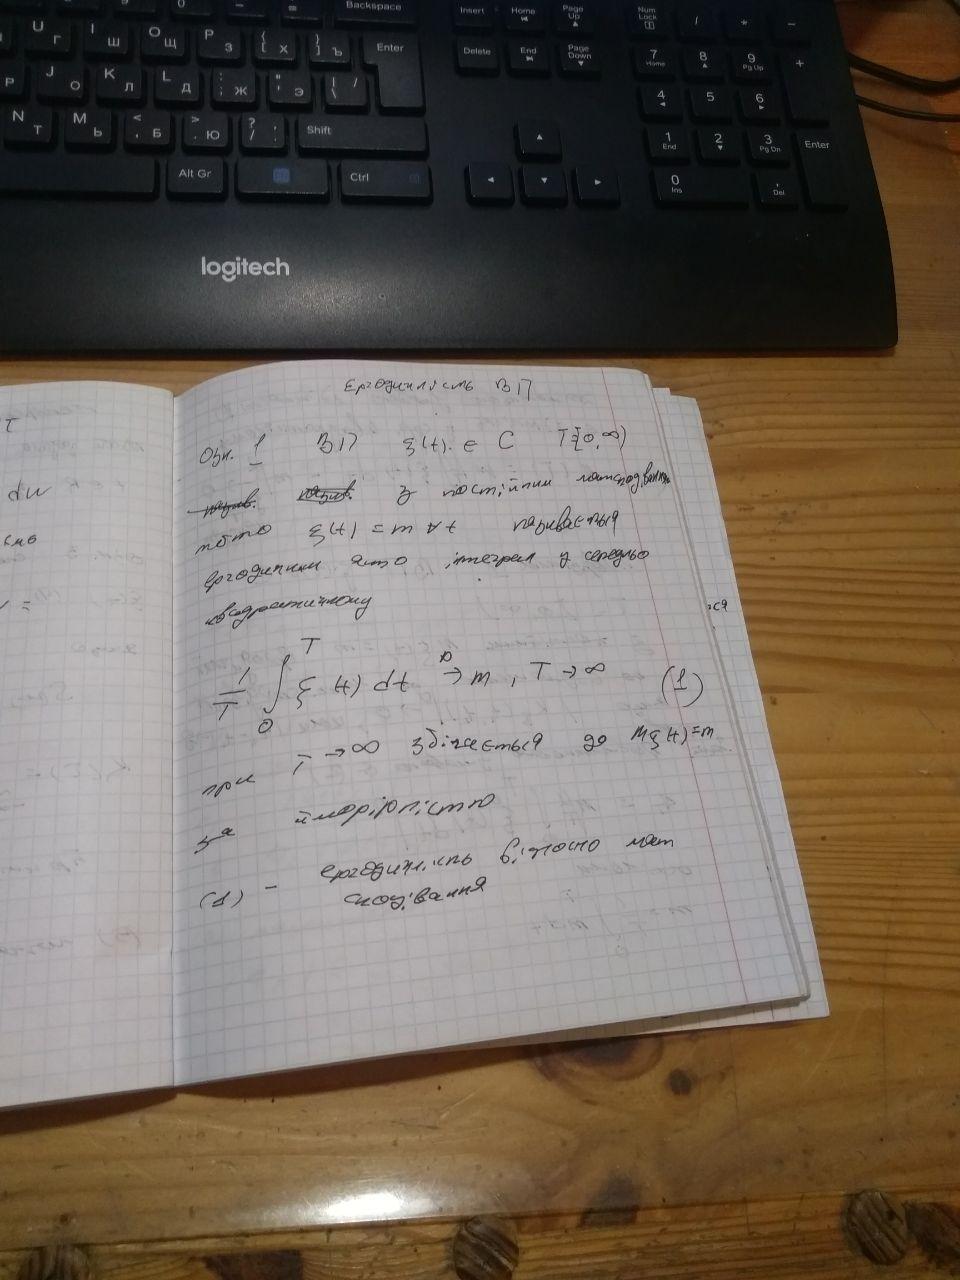 Backspace
Insert Home Page Up Num Lock / * -
U Г I Ш O Щ P З { [ Х } ] Ъ Enter
Delete End Page Down 7 Home 8 9 Pg Up +
Р J О K Л L Д : ; Ж " ' Э | \ /
4 5 6
N Т M Ь < , Б > . Ю ? / Shift
1 End 2 3 Pg Dn Enter
Alt Gr Ctrl 0 Ins . Del
logitech
Ергодичність ВП
Озн. 1 ВП ξ(t) ∈ C T[0, ∞)
з постійним матсподіванням
тобто ξ(t) = m ∀t називається
ергодичним якщо інтеграл у середньо
квадратичному
1/T ∫₀ᵀ ξ(t) dt →ᵖ m, T → ∞ (1)
при T → ∞ збігається до Mξ(t) = m
за ймовірністю
(1) - ергодичність відносно мат
сподівання